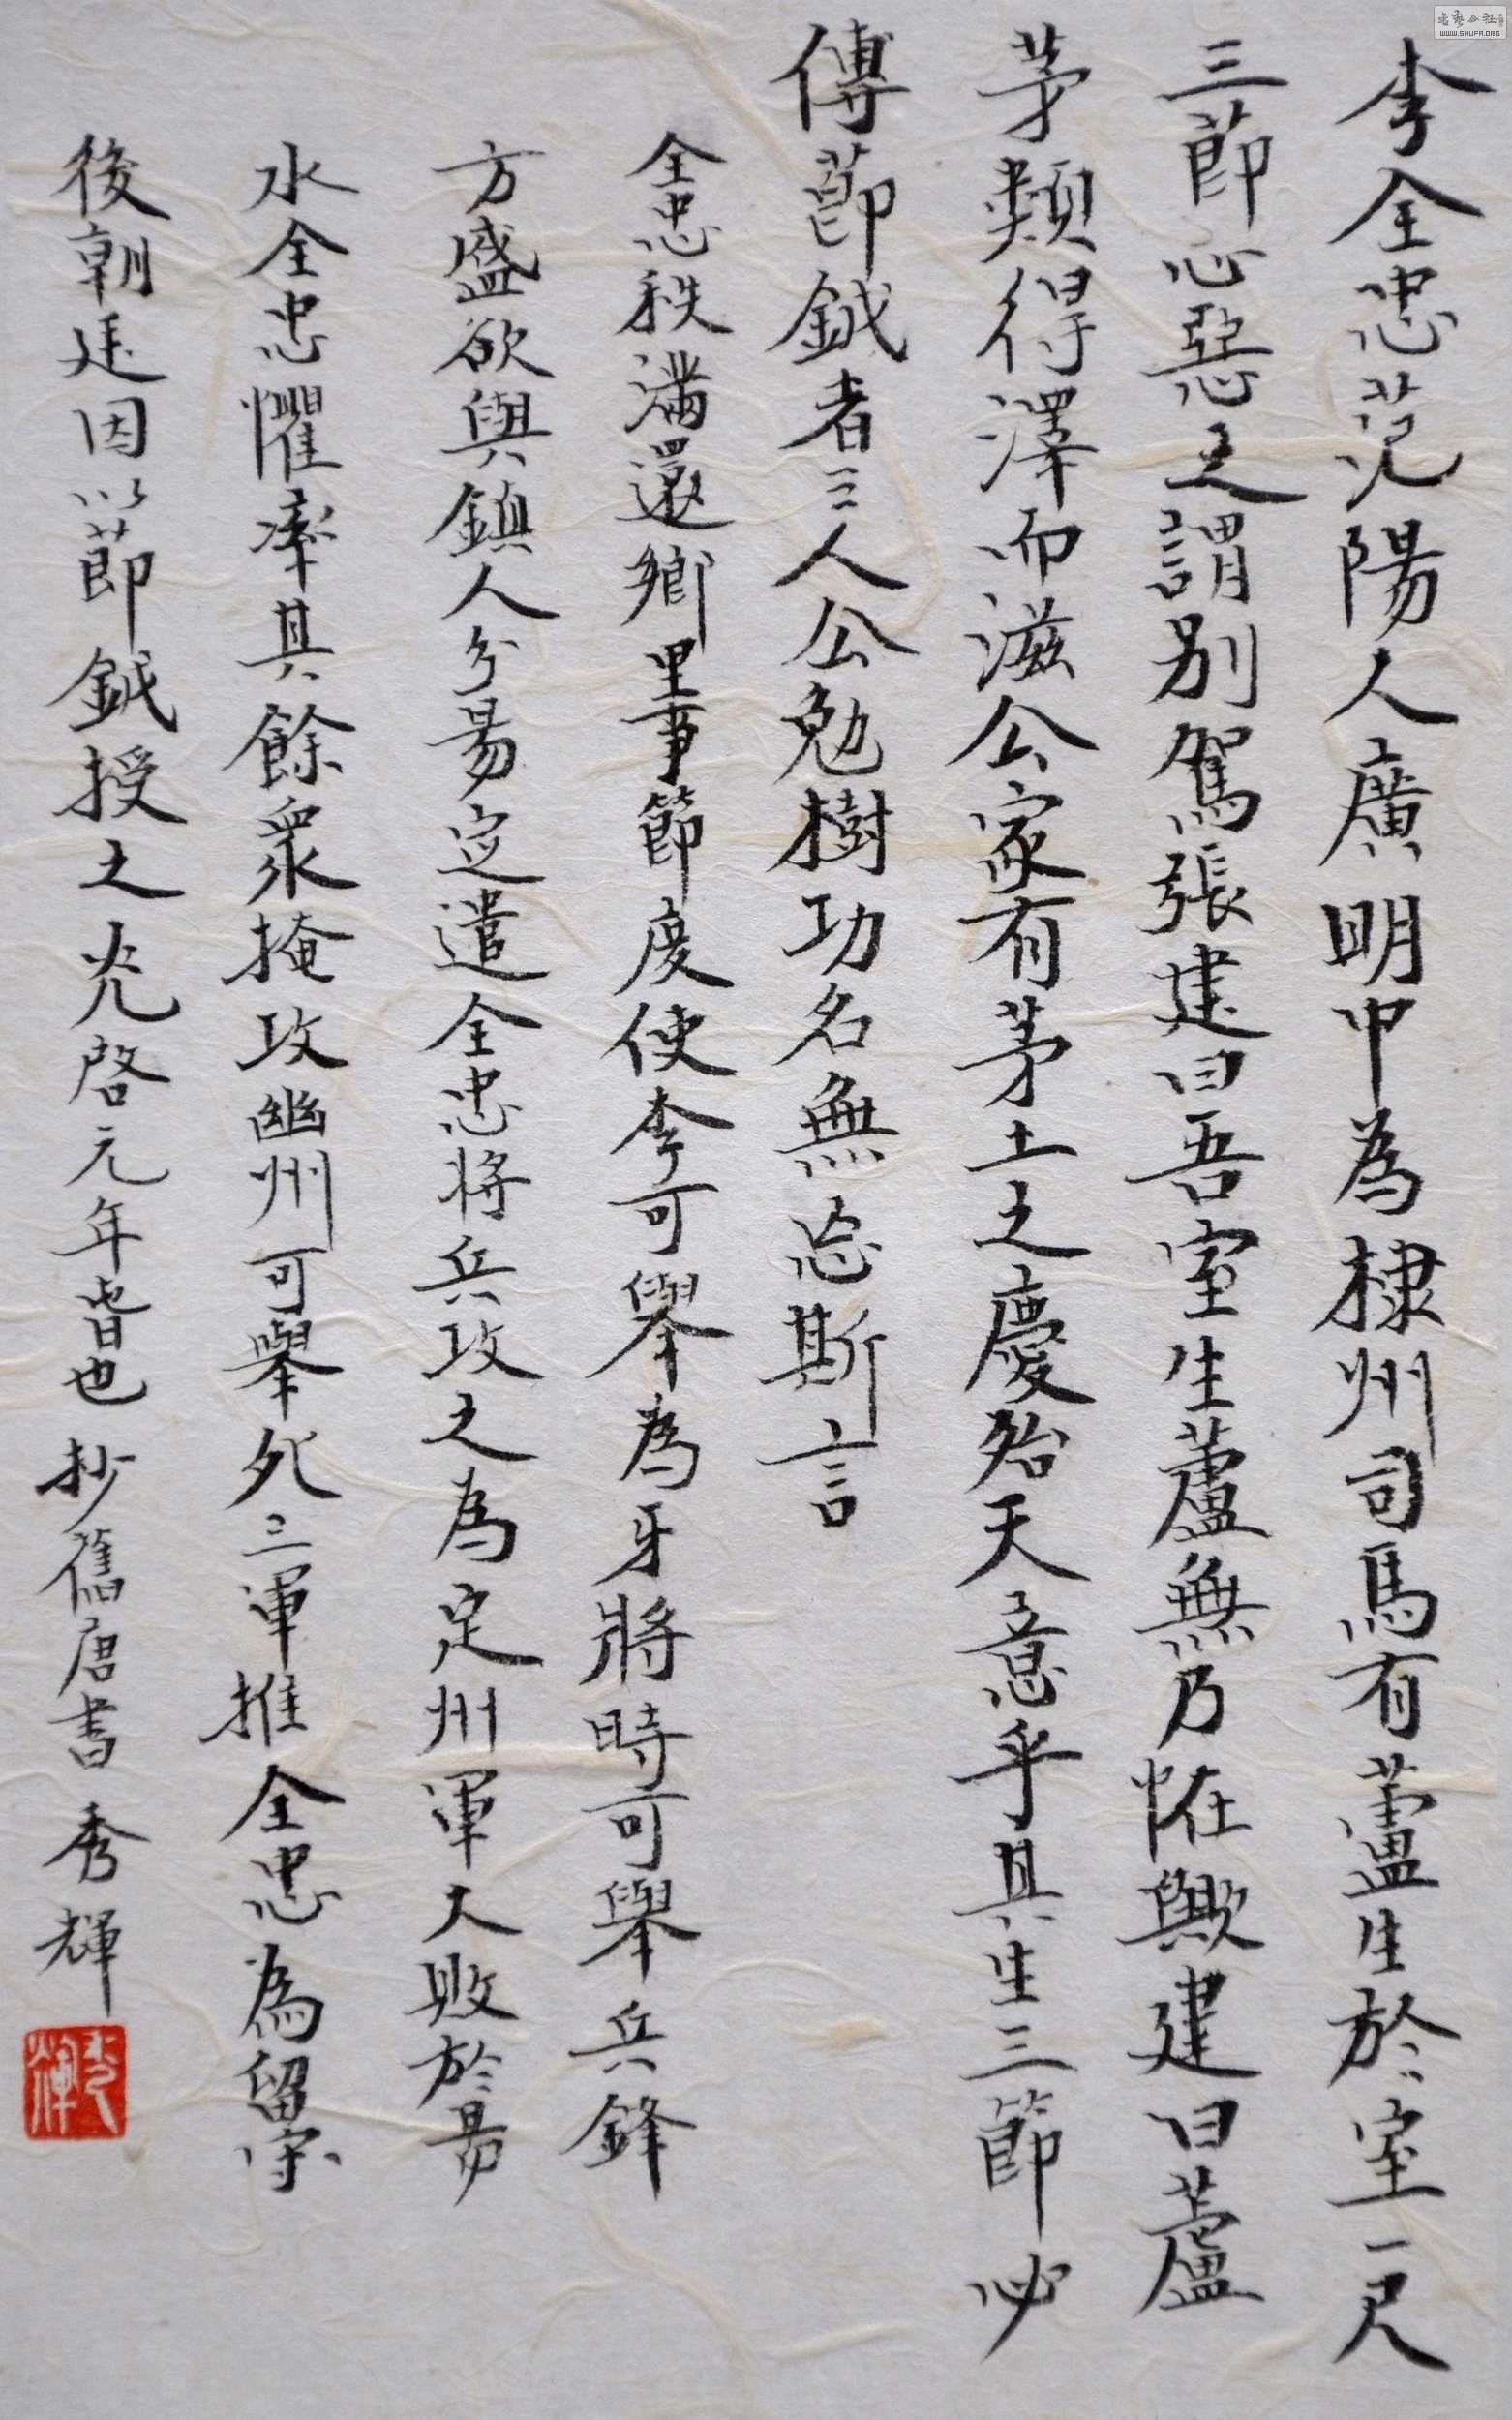 李全忠范陽人廣明中為棣州司馬有蘆生於室一尺
三節心惡之謂別駕張建曰吾室生蘆無乃怪歟建曰蘆
茅類得澤而滋公家有茅土之慶殆天意乎其生三節必
傳節鉞者三人公勉樹功名無忘斯言
全忠秩滿還鄉里事節度使李可舉為牙將時可舉兵鋒
方盛欲與鎮人分易定遣全忠將兵攻之為定州軍大敗於易
水全忠懼率其餘眾掩攻幽州可舉死三軍推全忠為留守
後朝廷因以節鉞授之光啓元年春也 抄舊唐書 秀輝
秀輝
書法公社
WWW.SHUFA.ORG